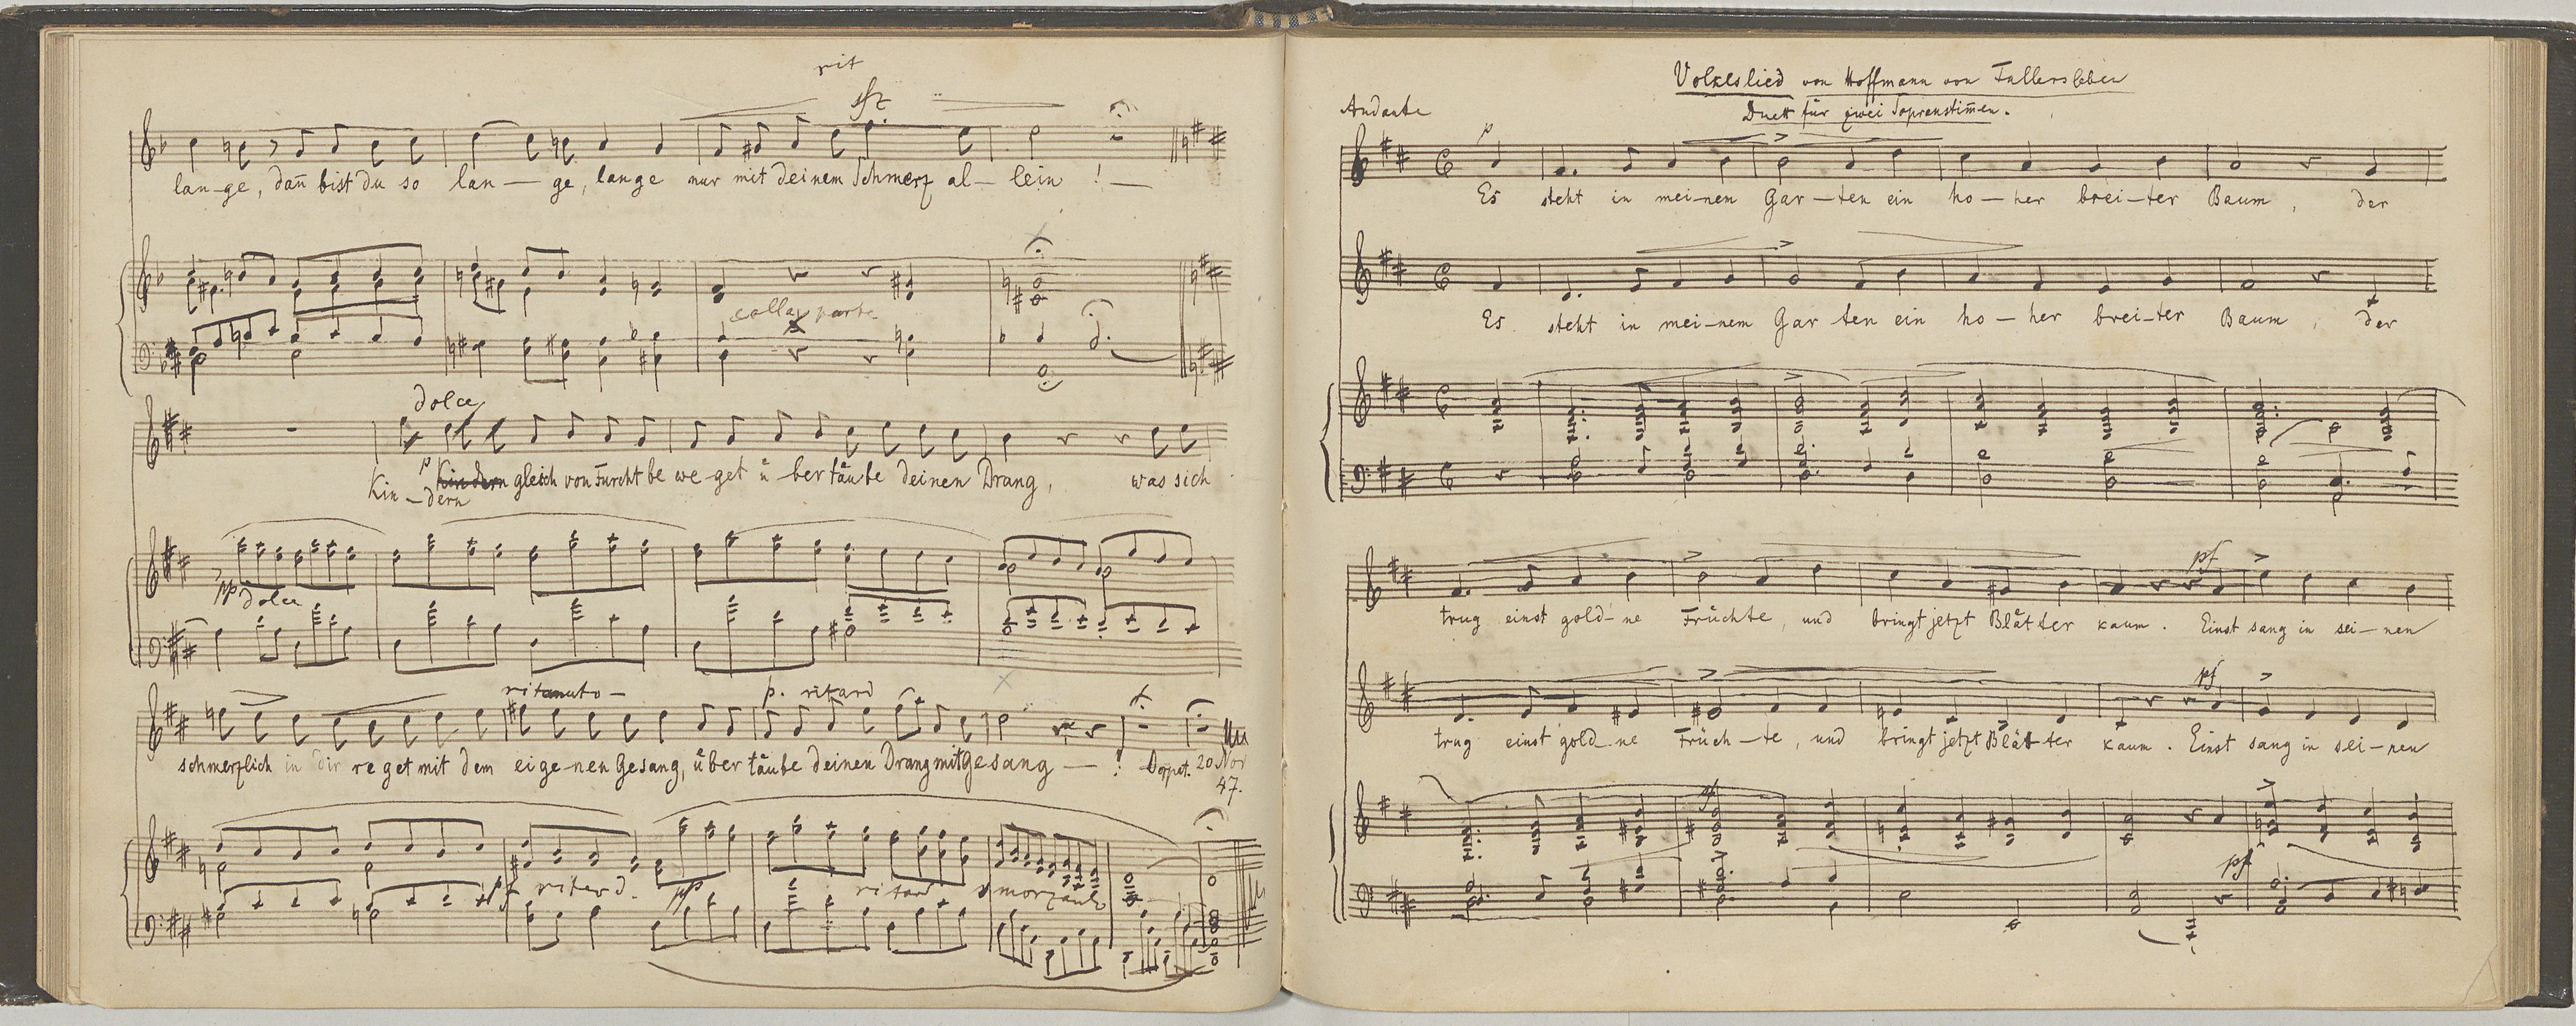 rit
sfz
lan-ge, dañ bist du so lan-ge, lange nur mit deinem Schmerz al-lein! -
colla parte
dolce
p
Kindern gleich von Furcht be we-get ü-bertäube deinen Drang, was sich
Kin-dern
pp dolce
ritenuto - p. ritard
schmerzlich in dir re get mit dem eige-nen Gesang, übertäube deinen Drang mit Gesang -! Dorpat. 20 Nov
47.
pf ritard. pp ritard smorzando
Volkslied von Hoffmann von Fallersleben
Andante
Duett für zwei Soprenstim̄en.
p
Es steht in mei-nen Gar-ten ein ho-her brei-ter Baum, der
Es steht in mei-nem Gar ten ein ho-her brei-ter Baum, der
pf
trug einst gold-ne Früchte, und bringt jetzt Blätter kaum. Einst sang in sei-nen
pf
trug einst gold-ne Früch-te, und bringt jetzt Blät-ter kaum. Einst sang in sei-nen
pf
pf